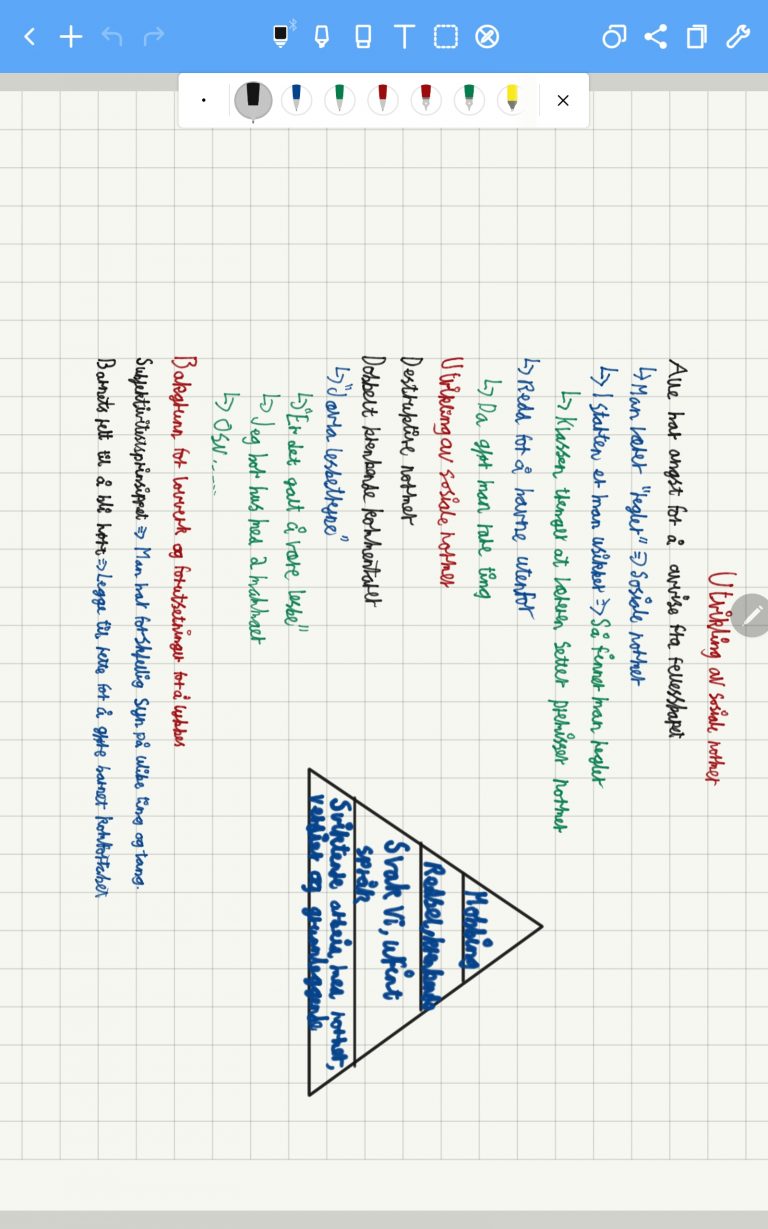 Utvikling av sosiale normer
Alle har angst for å avvise fra fellesskapet
↳ Man lærer "regler" => Sosiale normer
↳ I starten er man usikker => Så finner man regler
↳ Klassen trenger at læreren setter premisser normer
↳ Redd for å havne utenfor
↳ Da gjør man rare ting
Utvikling av sosiale normer
Destruktive normer
Dobbelt krenkende kommentarer
↳ "Jævla lesbetryne"
↳ "Er det galt å være lesbe"
↳ Jeg bor hus med 2
↳ OSV.....
Bakgrunn for lovverk og forutsetninger for å lykkes
Subjektivitetsprinsippet => Man har forskjellig syn på ulike ting og tang.
Barnets rett til å bli hørt => Legge til rette for å gjøre barnet komfortabel
Mobbing
Svak Vi, ufint
språk
Sviktende arbeid med normer,
verdier og grunnleggende